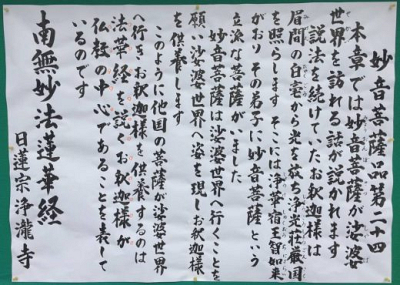 妙音菩薩品第二十四
本章では妙音菩薩が沙婆
世界を訪れる話が説かれます
説法を続けていたお釈迦様は
眉間の白毫から光を放ち浄光荘厳国
を照らします そこには浄華宿王智如来
がおりその弟子に妙音菩薩という
立派な菩薩がいました
妙音菩薩は沙婆世界へ行くことを
願い沙婆世界へ姿を現しお釈迦様
を供養します
このように他国の菩薩が沙婆世界
へ行きお釈迦様を供養するのは
法華経を説くお釈迦様が
仏教の中心であることを表して
いるのです
南無妙法蓮華経
日蓮宗浄瀧寺